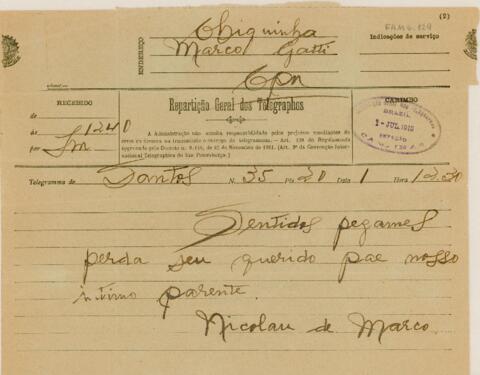 (2)
FAMG.129
Chiquinha
Marco Gatti
Cpn
ENDEREÇO
Indicações de serviço
RECEBIDO
de
ás 1240
por
Repartição Geral dos Telegraphos
A Administração não acceita responsabilidade pelos prejuizos resultantes de
erros ou demora na transmissão e entrega de telegrammas. — Art. do Regulamento
approvado pelo Decreto n. de de Novembro de 1901. (Art. 3º da Convenção Inter-
nacional Telegraphica de São Petersburgo.)
CARIMBO
BRAZIL
2-JUL.1915
ESTAÇÃO
Telegramma de Santos N. 35 Pls 20 Data 1 Hora 12.30
Sentidos pezames
perda seu querido pae nosso
intimo parente.
Nicolau de Marco.